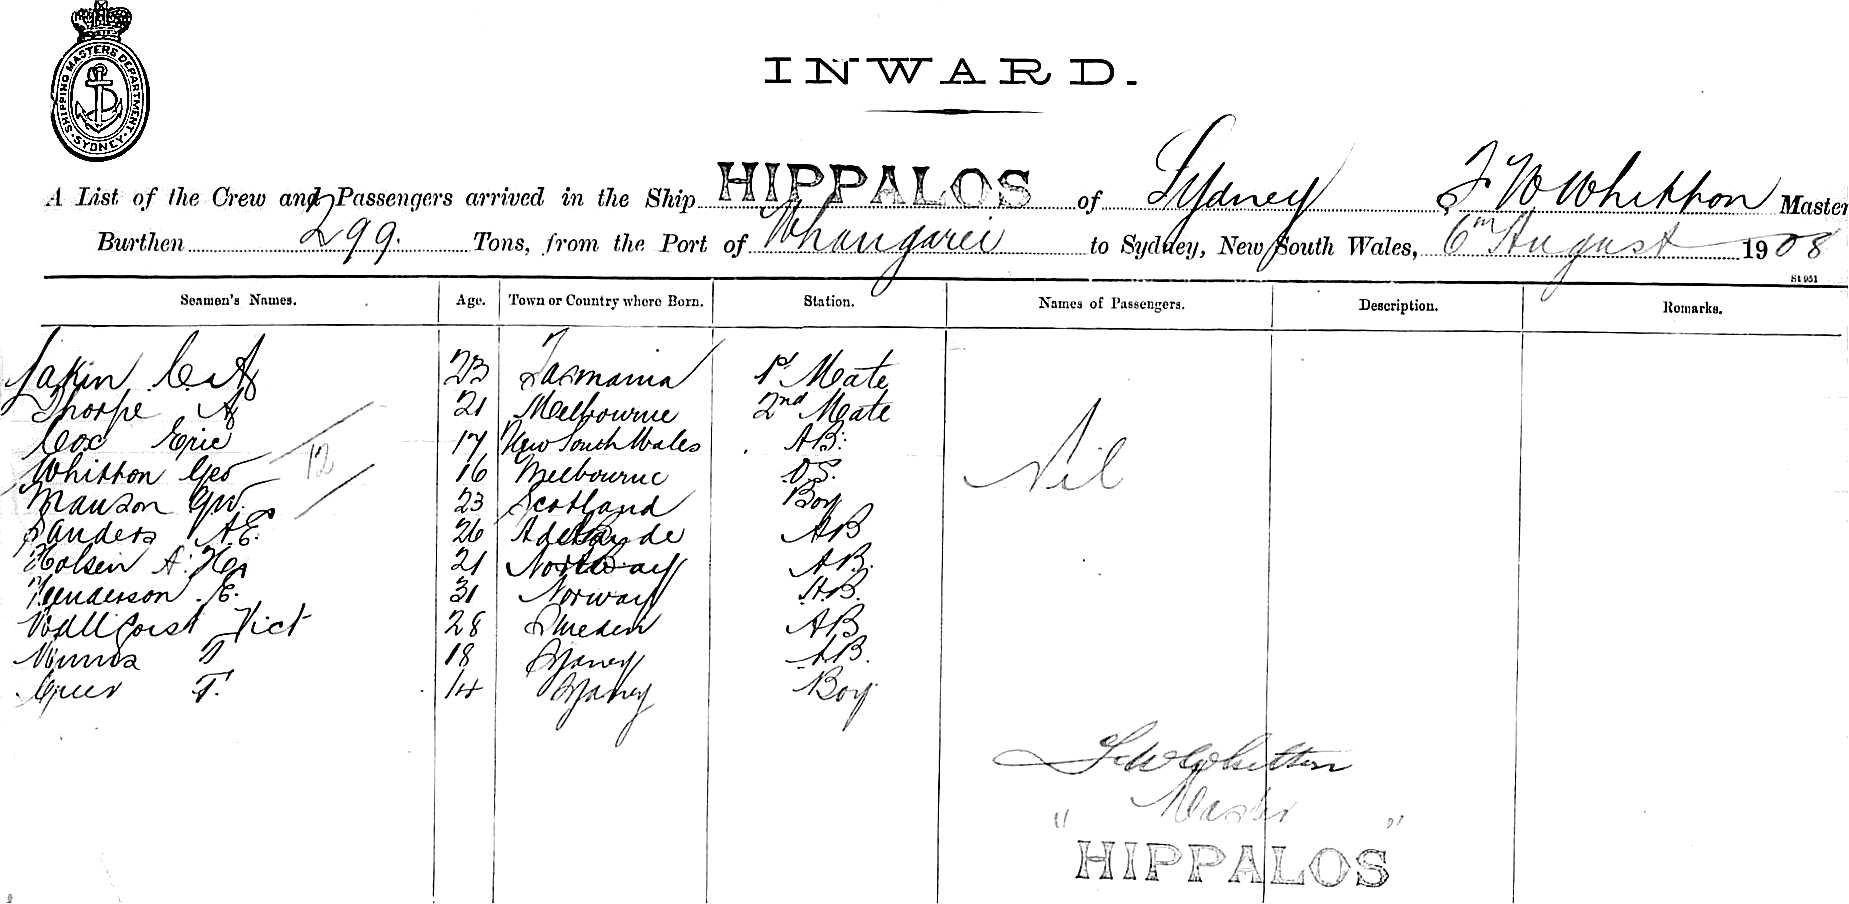 SHIPPING MASTERS DEPARTMENT
SYDNEY
INWARD.
A List of the Crew and Passengers arrived in the Ship HIPPALOS of Sydney F W Whitton Master
Burthen 299. Tons, from the Port of Whangarei to Sydney, New South Wales, 6th August 1908
St 951
Seamen's Names. Age. Town or Country where Born. Station. Names of Passengers. Description. Remarks.
Lakin C A 23 Tasmania 1st Mate
Thorpe A 21 Melbourne 2nd Mate
Cox Eric 17 New South Wales A B.
Whitton Geo 16 Melbourne O S.
12
Manson Geo. 23 Scotland Boy
Sanders A. E. 26 Adelaide A B
Holsen A. 21 Norway A B.
Henderson E. 31 Norway A B.
Vict 28 Sweden A B
18 Sydney A B.
Greer T. 14 Sydney Boy
Nil
F W Whitton
Master
" "
HIPPALOS